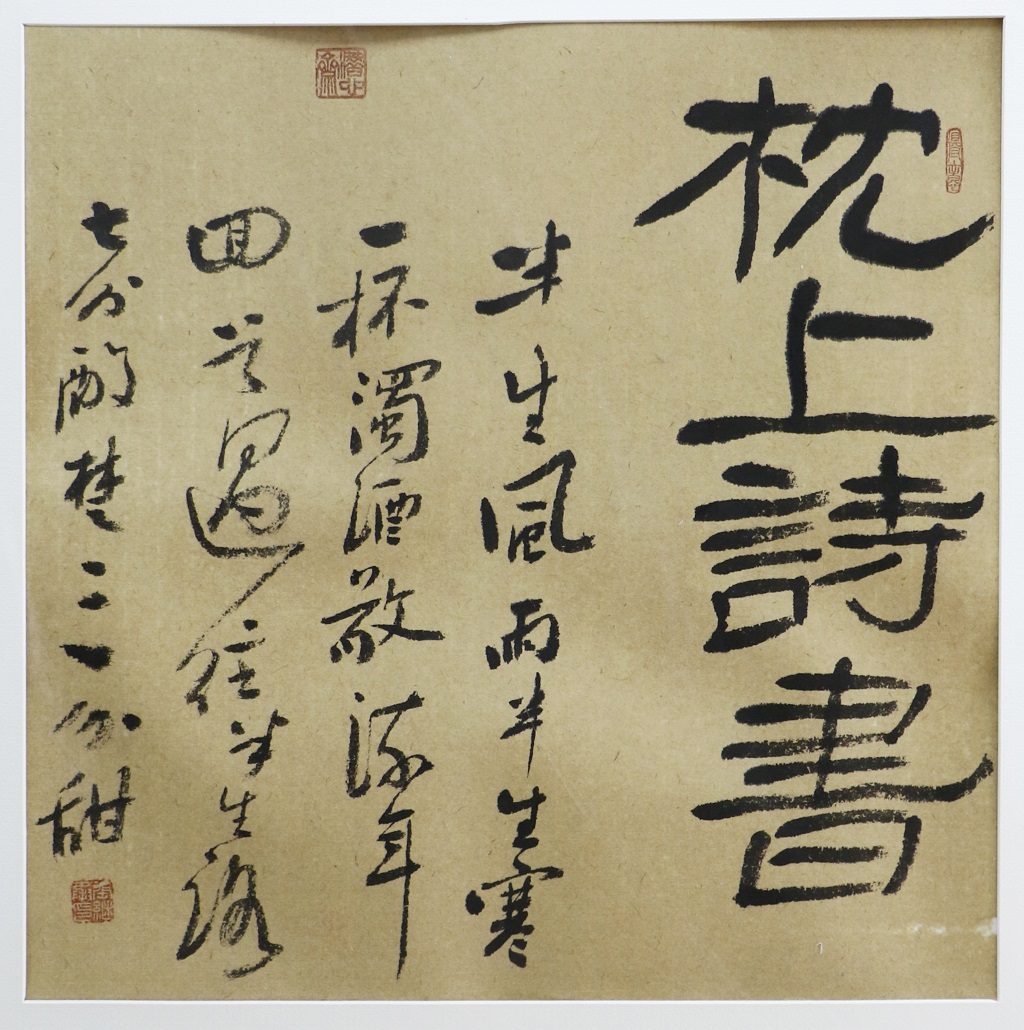 枕上詩書
半生風雨半生寒
一杯濁酒敬流年
回首過往半生路
七分酸楚三分甜